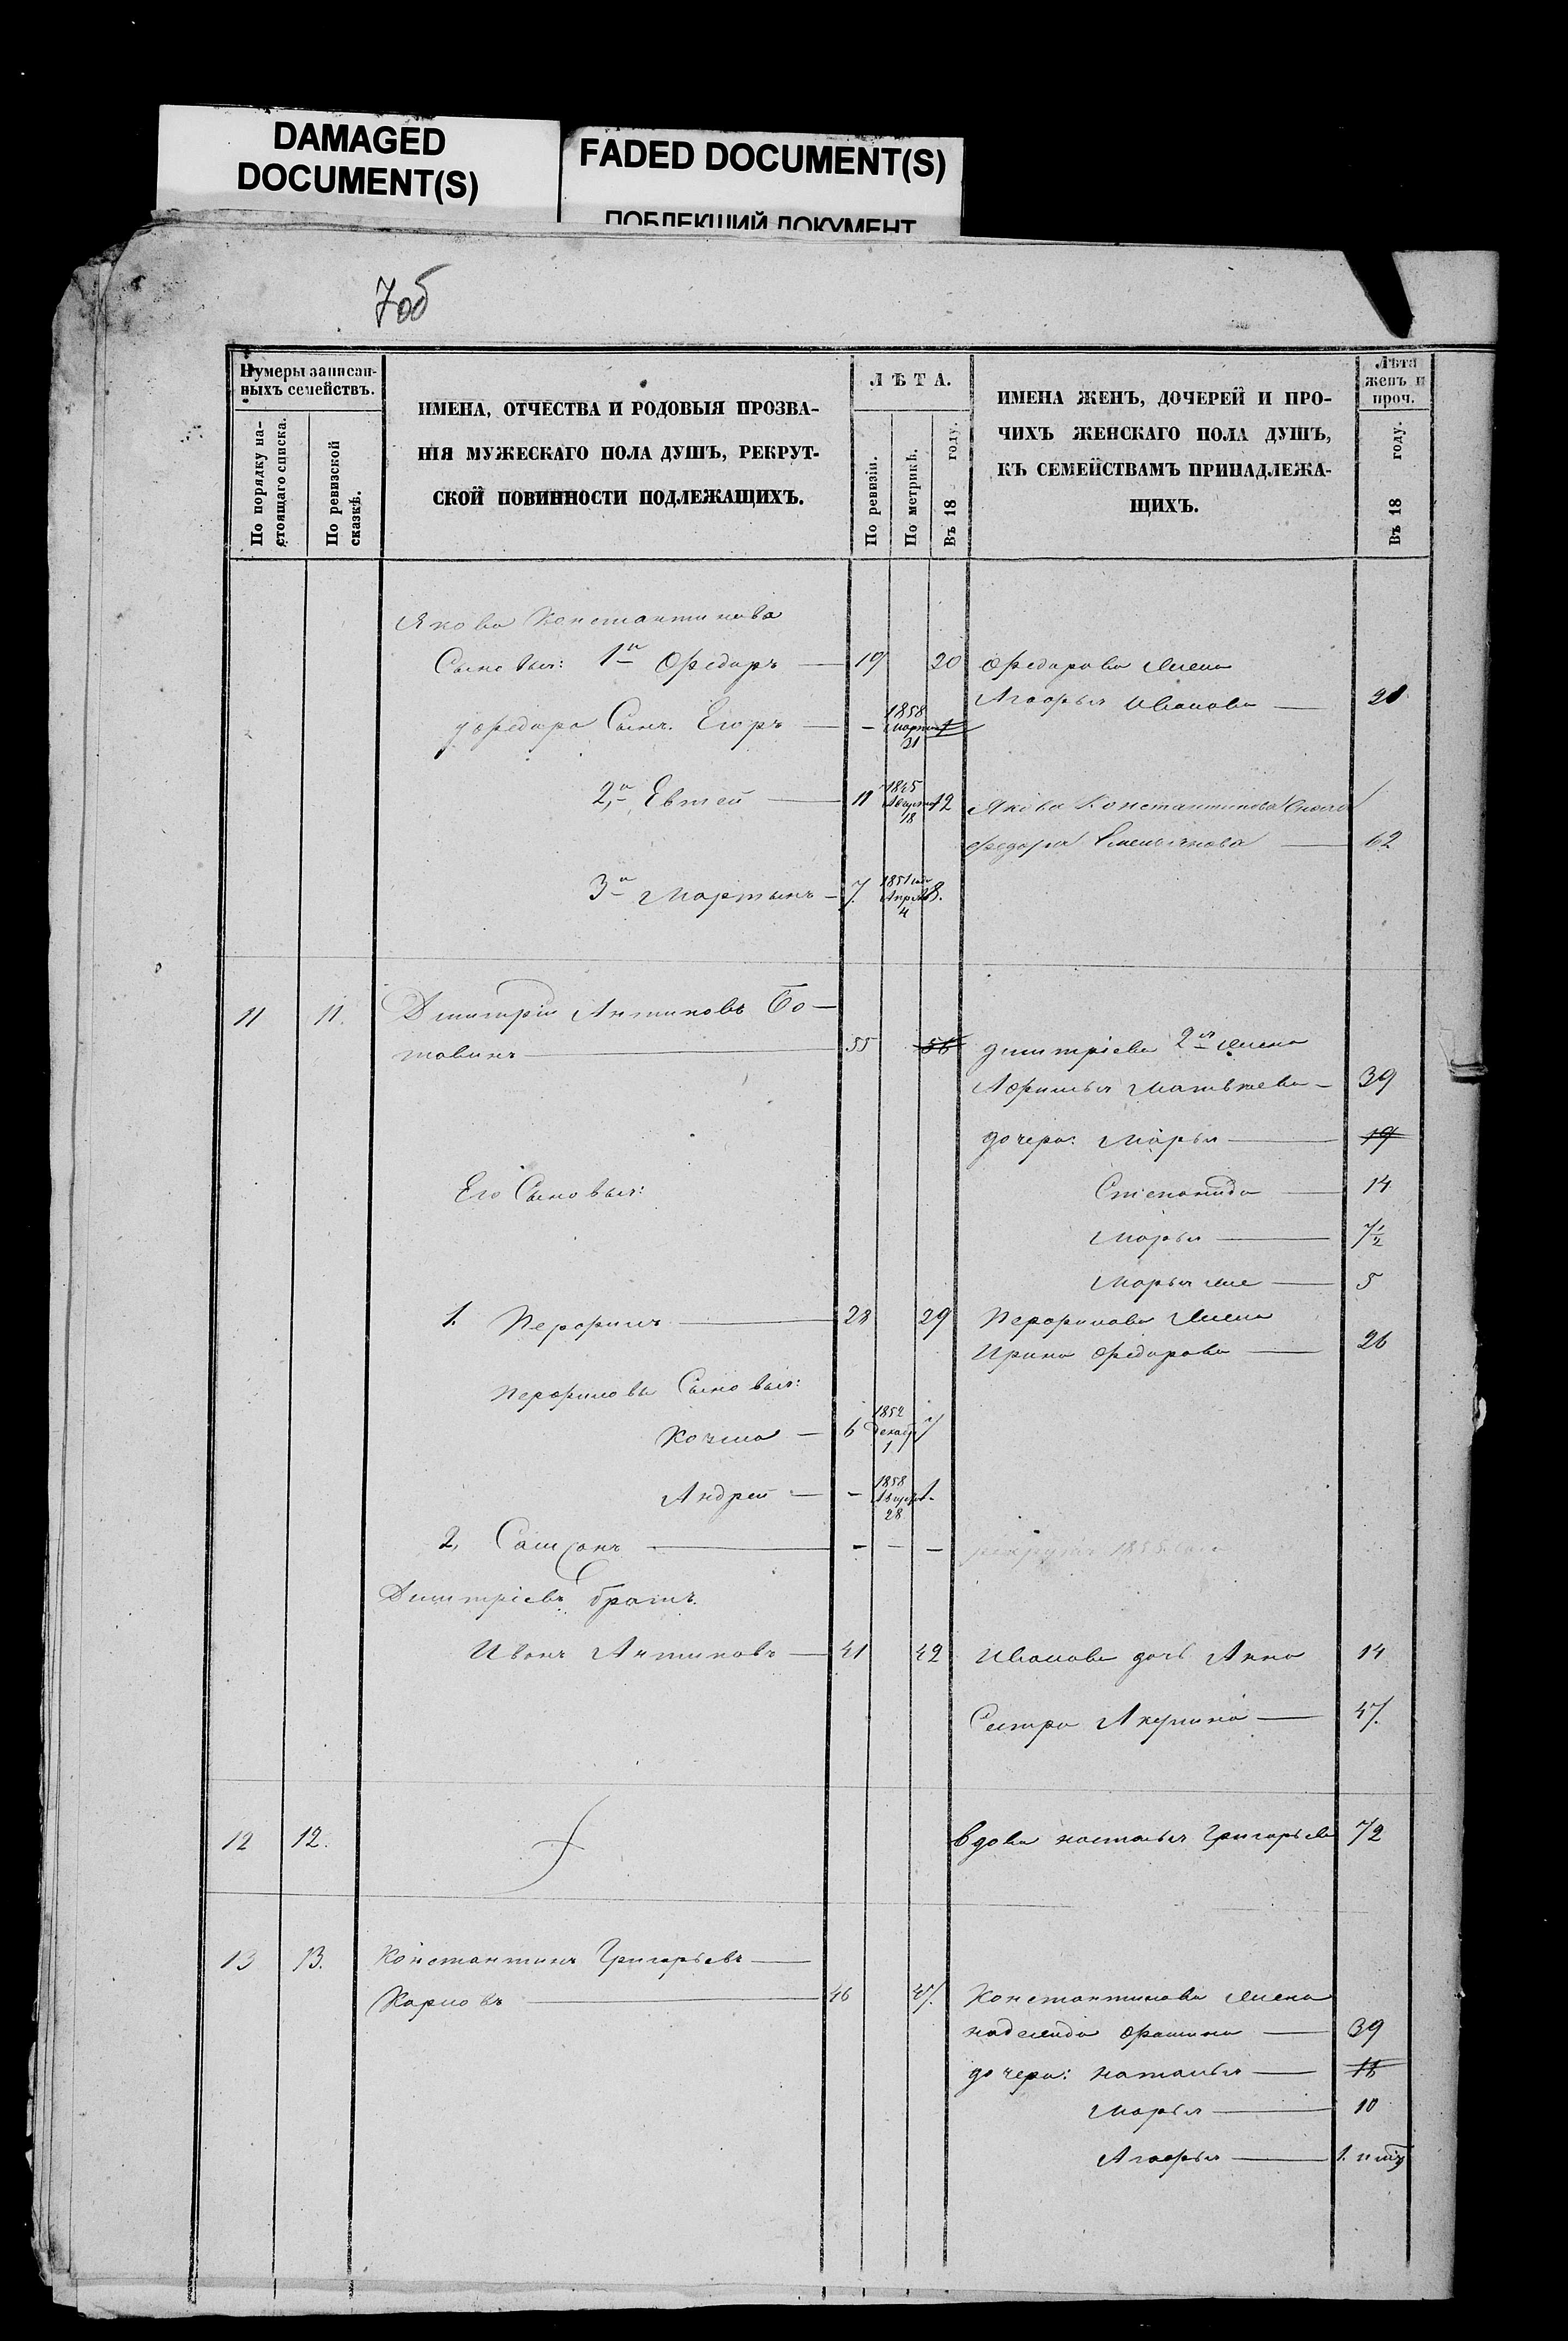 DAMAGED
DOCUMENT(S)
FADED DOCUMENT(S)
ПОБЛЕКШИЙ ДОКУМЕНТ
7об
Нумеры записан-
ныхъ семействъ.
По порядку на-
стоящаго списка.
По ревизской
сказкѣ.
ИМЕНА, ОТЧЕСТВА И РОДОВЫЯ ПРОЗВА-
НІЯ МУЖЕСКАГО ПОЛА ДУШЪ, РЕКРУТ-
СКОЙ ПОВИННОСТИ ПОДЛЕЖАЩИХЪ.
ЛѢТА.
По ревизіи.
По метрикѣ.
Въ 18 году.
ИМЕНА ЖЕНЪ, ДОЧЕРЕЙ И ПРО-
ЧИХЪ ЖЕНСКАГО ПОЛА ДУШЪ,
КЪ СЕМЕЙСТВАМЪ ПРИНАДЛЕЖА-
ЩИХЪ.
Лѣта
женъ и
проч.
Въ 18 году.
Якова Константинова
Сыновья: 1й Ѳедоръ — 19 20 Ѳедорова жена
Агаѳья Иванова — 20
у Ѳедора Сынъ Егоръ — – 1858 Марта 31 1
2й Евтей — 11 1845 Августа 18 12 Якова Константинова
Ѳедора Емельянова — 62
3й Мартынъ — 7. 1851 Апрѣл 4 8.
11 11. Дмитрій Антиповъ Бо—
товинъ — 55 56 Дмитріева 2я жена
Аѳимья Матвѣева — 39
дочери: Марья — 19
Его Сыновья: Степанида — 14
Марья — 7½
Марья же — 5
1. Перфилъ — 28 29 Перфилова жена
Ирина Ѳедорова — 26
Перфиловы Сыновья:
Козма — 6 1852 Декабр 1 7
Андрей — – 1858 Август 28 1.
2, Самсонъ — – – – рекрутъ 1855 года
Дмитріевъ братъ
Иванъ Антиповъ — 41 42 Иванова дочь Анна 14
Сестра Акулина — 47.
12 12. вдова Наталья Григорьева 72
13 13. Константинъ Григорьевъ —
Карповъ — 46 47. Константинова жена
Надежда Ѳомина — 39
дочери: Наталья — 16
Марья — 10
Агаѳья — 1.